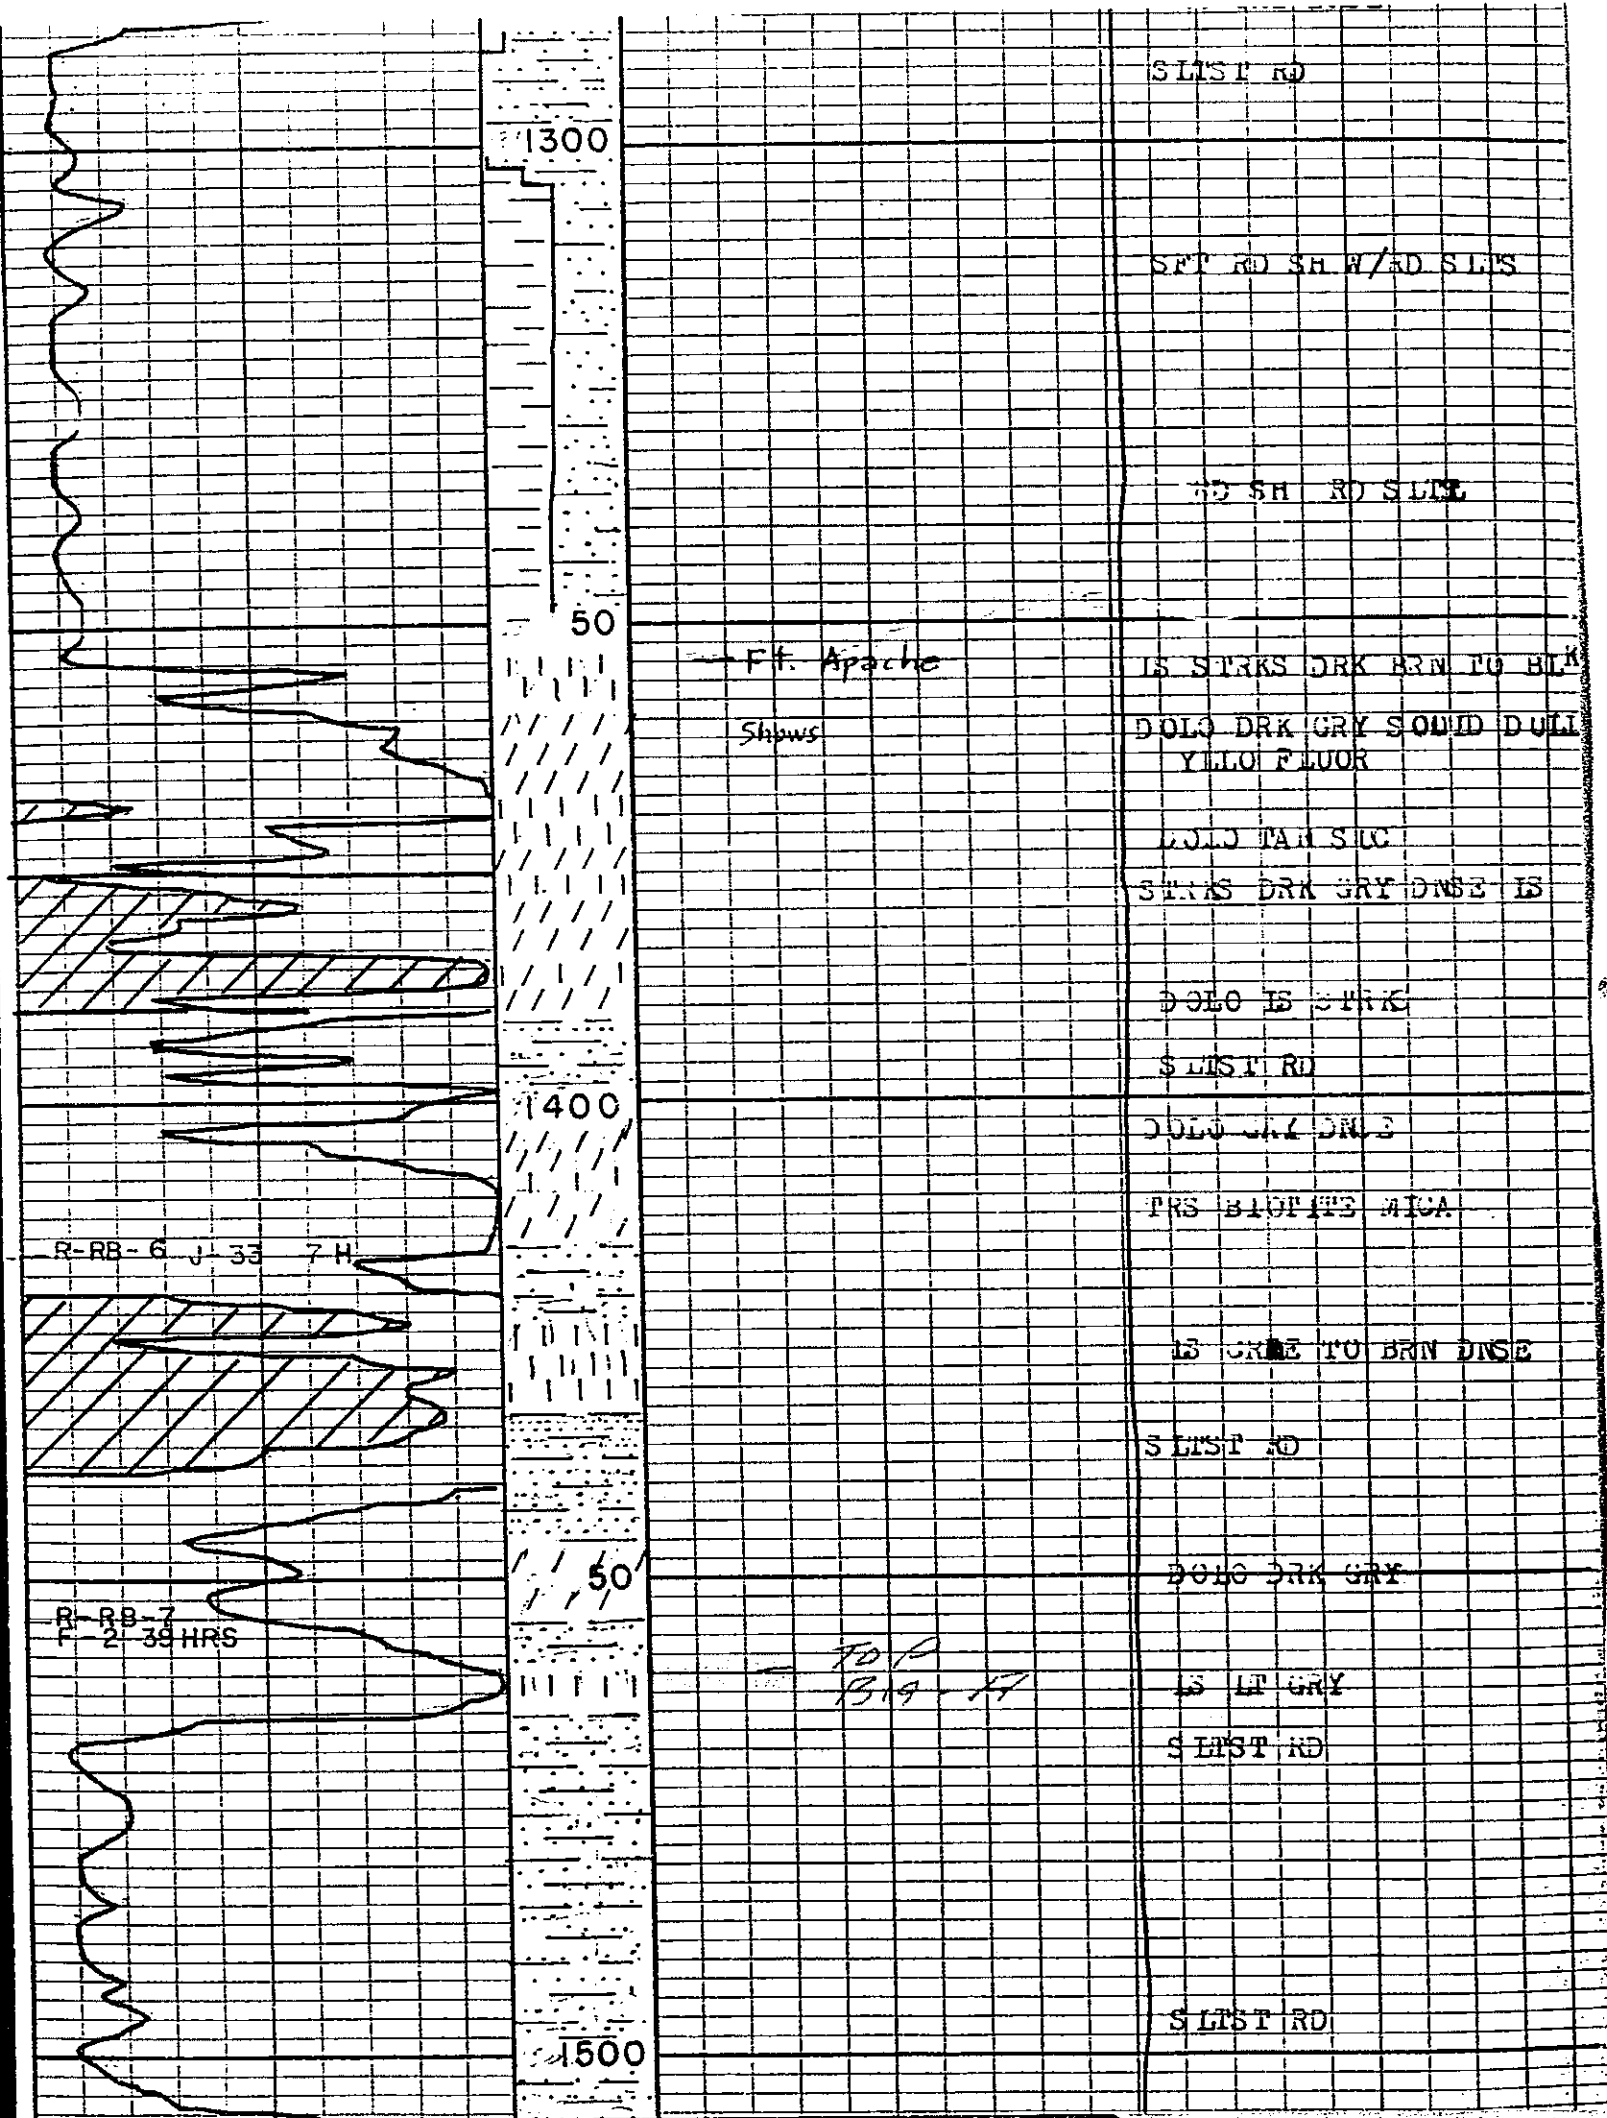 SLTST RD
1300
SFT RD SH W/RD SLTS
RD SH RD SLTS
50
Ft. Apache
LS STRKS DRK BRN TO BLK
Shows
DOLO DRK GRY SOUID DULL
YLLO FLUOR
DOLO TAN SUC
STRKS DRK GRY DNSE LS
DOLO LS STRKS
SLTST RD
1400
DOLO GRY DNSE
TRS BIOTITE MICA
R-RB-6 J-33 7 H
LS CRME TO BRN DNSE
SLTST RD
50
DOLO DRK GRY
R-RB-7
F-2 39 HRS
Top
Big - A
LS LT GRY
SLTST RD
SLTST RD
1500